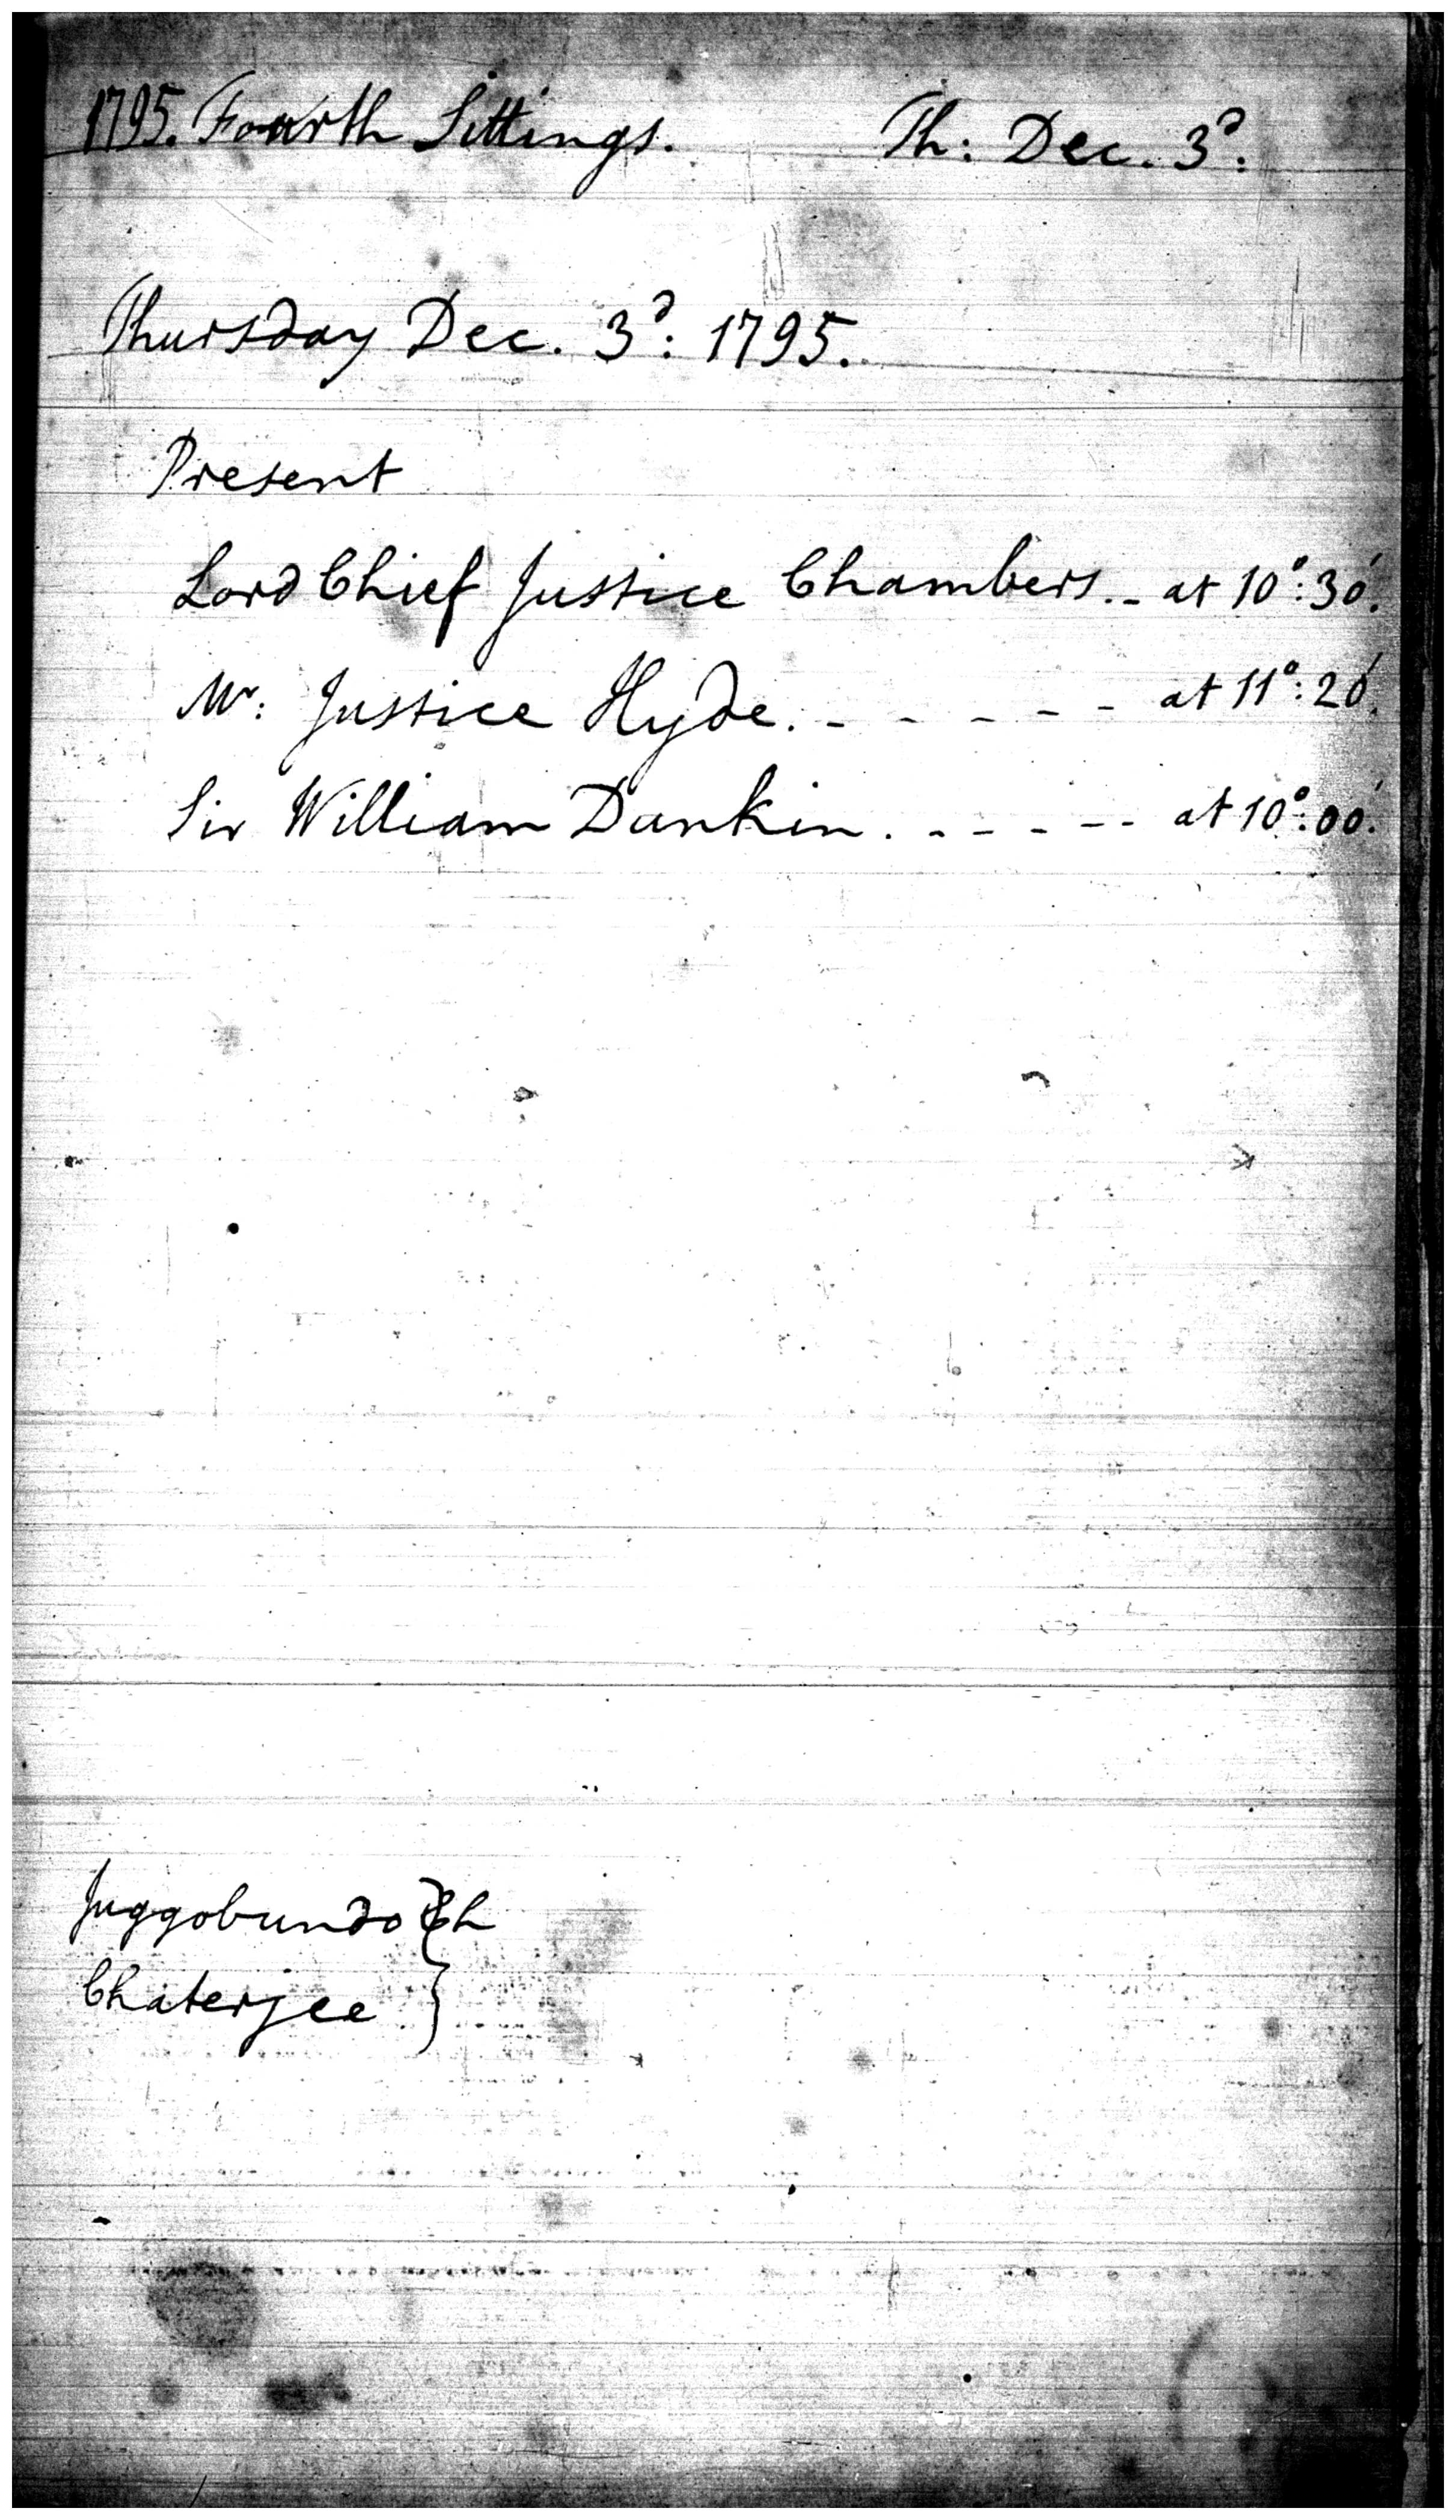 1795. Fourth Sittings. Th: Dec. 3d:
Thursday Dec. 3d: 1795.
Present
Lord Chief Justice Chambers. - at 10°: 30'.
Mr: Justice Hyde. - - - - - at 11°: 20'.
Sir William Dunkin. - - - - - at 10°: 00'.
Juggobundo } Ch
Chaterjee }